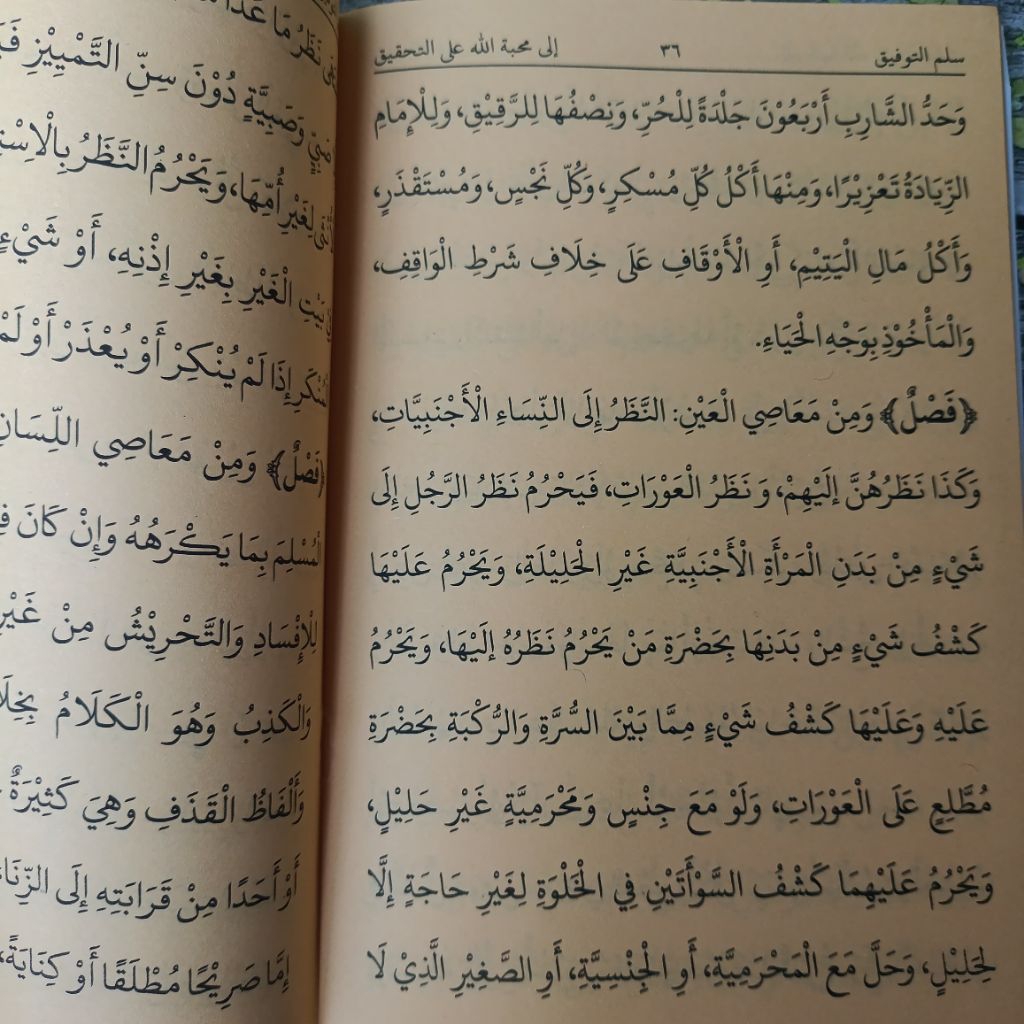 سلم التوفيق ٣٦ إلى محبة الله على التحقيق
وَحَدُّ الشَّارِبِ أَرْبَعُوْنَ جَلْدَةً لِلْحُرِّ، وَنِصْفُهَا لِلرَّقِيْقِ، وَلِلْإِمَامِ
الزِّيَادَةُ تَعْزِيْرًا، وَمِنْهَا أَكْلُ كُلِّ مُسْكِرٍ، وَكُلِّ نَجْسٍ، وَمُسْتَقْذَرٍ،
وَأَكْلُ مَالِ الْيَتِيْمِ، أَوِ الْأَوْقَافِ عَلَى خِلَافِ شَرْطِ الْوَاقِفِ،
وَالْمَأْخُوْذِ بِوَجْهِ الْحَيَاءِ.
﴿فَصْلٌ﴾ وَمِنْ مَعَاصِي الْعَيْنِ: النَّظَرُ إِلَى النِّسَاءِ الْأَجْنَبِيَّاتِ،
وَكَذَا نَظَرُهُنَّ إِلَيْهِمْ، وَنَظَرُ الْعَوْرَاتِ، فَيَحْرُمُ نَظَرُ الرَّجُلِ إِلَى
شَيْءٍ مِنْ بَدَنِ الْمَرْأَةِ الْأَجْنَبِيَّةِ غَيْرِ الْحَلِيْلَةِ، وَيَحْرُمُ عَلَيْهَا
كَشْفُ شَيْءٍ مِنْ بَدَنِهَا بِحَضْرَةِ مَنْ يَحْرُمُ نَظَرُهُ إِلَيْهَا، وَيَحْرُمُ
عَلَيْهِ وَعَلَيْهَا كَشْفُ شَيْءٍ مِمَّا بَيْنَ السُّرَّةِ وَالرُّكْبَةِ بِحَضْرَةِ
مُطَّلِعٍ عَلَى الْعَوْرَاتِ، وَلَوْ مَعَ جِنْسٍ وَمَحْرَمِيَّةٍ غَيْرِ حَلِيْلٍ،
وَيَحْرُمُ عَلَيْهِمَا كَشْفُ السَّوْأَتَيْنِ فِي الْخَلْوَةِ لِغَيْرِ حَاجَةٍ إِلَّا
لِحَلِيْلٍ، وَحَلَّ مَعَ الْمَحْرَمِيَّةِ، أَوِ الْجِنْسِيَّةِ، أَوِ الصَّغِيْرِ الَّذِيْ لَا
نَظَرُ مَا
وَصَبِيَّةٍ دُوْنَ سِنِّ التَّمْيِيْزِ
لِغَيْرِ أُمِّهَا، وَيَحْرُمُ النَّظَرُ
الْغَيْرِ بِغَيْرِ إِذْنِهِ، أَوْ شَيْءٍ
إِذَا لَمْ يُنْكِرْ أَوْ يُعْذَرْ أَوْ لَمْ
﴿فَصْلٌ﴾ وَمِنْ مَعَاصِي اللِّسَانِ
الْمُسْلِمَ بِمَا يَكْرَهُهُ وَإِنْ كَانَ
لِلْإِفْسَادِ وَالتَّحْرِيْشُ مِنْ غَيْرِ
وَالْكَذِبُ وَهُوَ الْكَلَامُ
وَأَلْفَاظُ الْقَذَفِ وَهِيَ كَثِيْرَةٌ
أَوْ أَحَدًا مِنْ قَرَابَتِهِ إِلَى الزِّنَا
إِمَّا صَرِيْحًا مُطْلَقًا أَوْ كِنَايَةً،